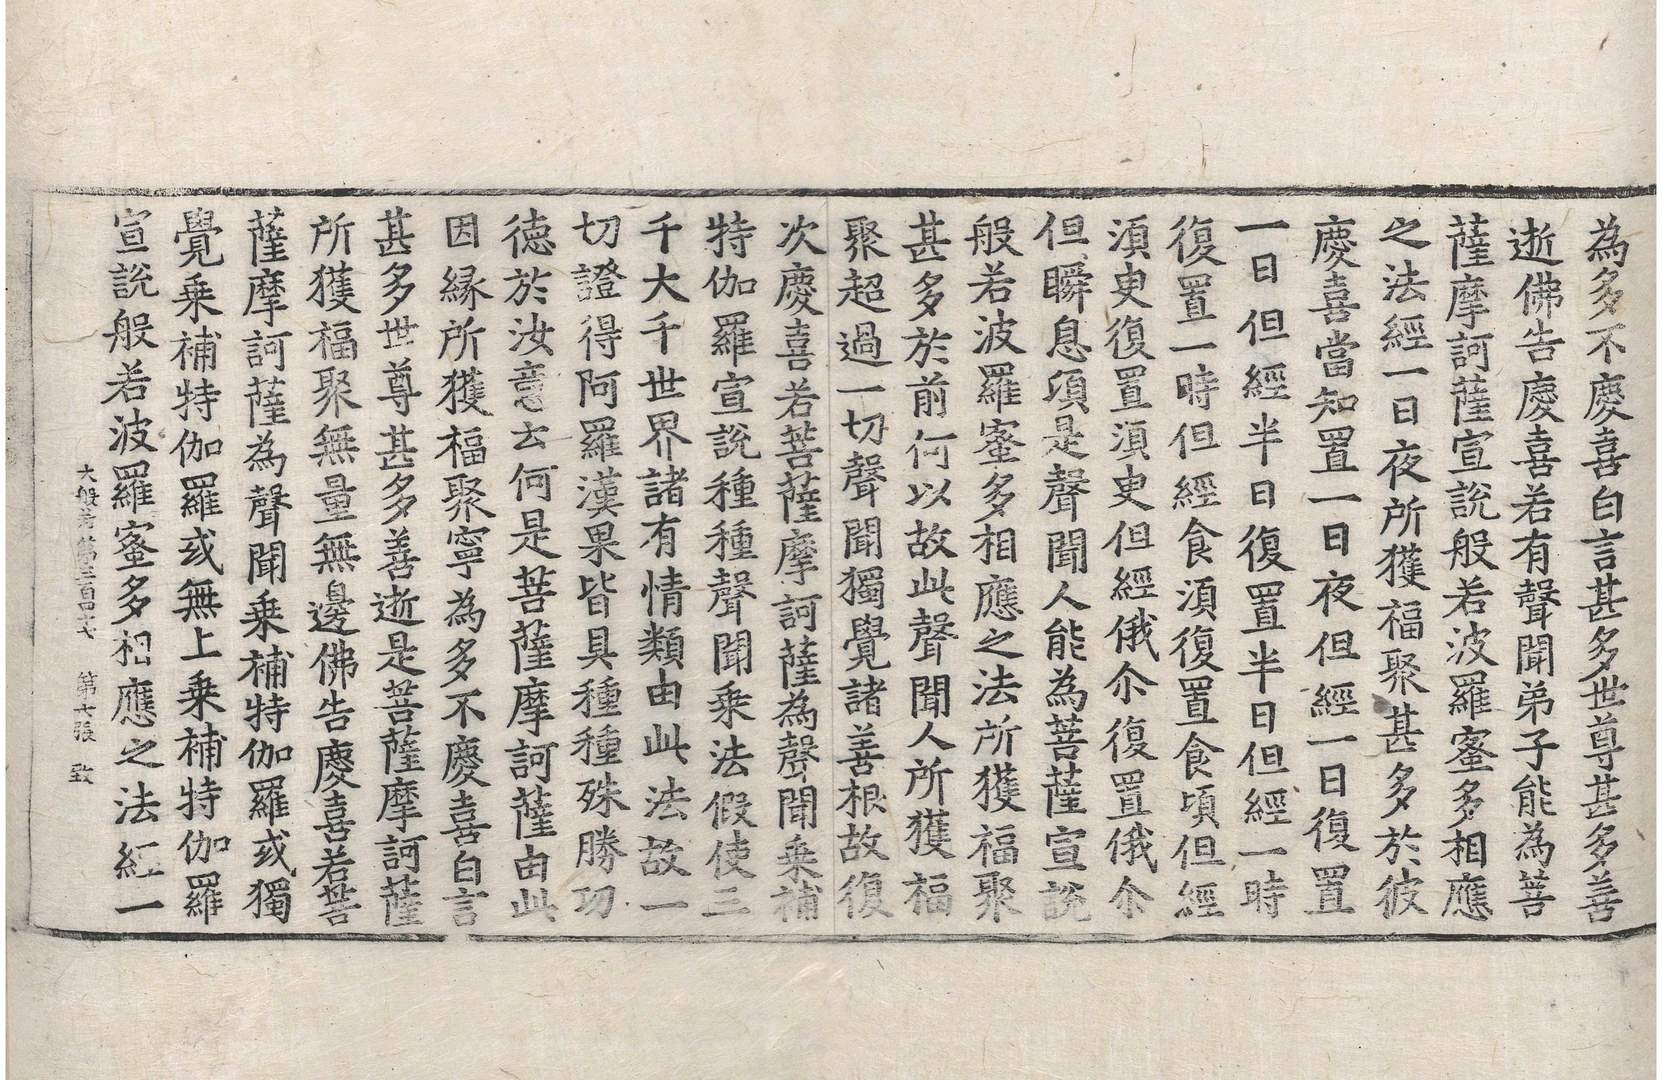 為多不慶喜白言甚多世尊甚多善
逝佛告慶喜若有聲聞弟子能為菩
薩摩訶薩宣說般若波羅蜜多相應
之法經一日夜所獲福聚甚多於彼
慶喜當知置一日夜但經一日復置
一日但經半日復置半日但經一時
復置一時但經食湏復置食頃但經
湏臾復置湏臾但經俄尒復置俄尒
但瞬息頃是聲聞人能為菩薩宣說
般若波羅蜜多相應之法所獲福聚
甚多於前何以故此聲聞人所獲福
聚超過一切聲聞獨覺諸善根故復
次慶喜若菩薩摩訶薩為聲聞乗補
特伽羅宣說種種聲聞乗法假使三
千大千世界諸有情類由此法故一
切證得阿羅漢果皆具種種殊勝功
德於汝意云何是菩薩摩訶薩由此
因緣所獲福聚寧為多不慶喜白言
甚多世尊甚多善逝是菩薩摩訶薩
所獲福聚無量無邊佛告慶喜若菩
薩摩訶薩為聲聞乗補特伽羅或獨
覺乗補特伽羅或無上乗補特伽羅
宣說般若波羅蜜多相應之法經一
大般若第三百四十七 第六張 致